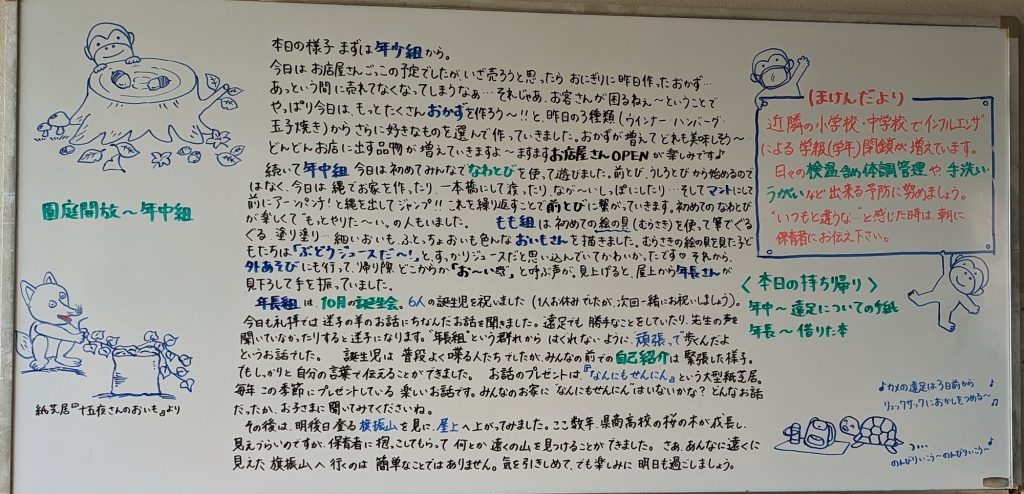 本日の様子 まずは年少組から。
今日は お店屋さんごっこの予定でしたが、いざ売ろうと思ったら おにぎりに昨日作ったおかず…
あっという間に売れてなくなってしまうなぁ…それじゃあ、お客さんが困るねぇ〜ということで
やっぱり今日は、もっとたくさんおかずを作ろう〜!!と、昨日の3種類(ウインナー・ハンバーグ・
玉子焼き)からさらに好きなものを選んで作っていきました。おかずが増えてどれも美味しそ〜
どんどんお店に出す品物が増えていきますよ〜ますますお店屋さんOPENが楽しみです♪
続いて年中組 今日は初めてみんなでなわとびを使って遊びました。前とび、うしろとびから始めるので
はなく、今日は縄でお家を作ったり、一本橋にして渡ったり、なが〜いしっぽにしたり…そしてマントにして
前にアーンパンチ!と縄を出してジャンプ!!これを繰り返すことで前とびに繋がっていきます。初めてのなわとび
が楽しくて"もっとやりた〜い。の人もいました。 もも組は初めての絵の具(むらさき)を使って筆でぐる
ぐる塗り塗り…細いおいも、ふとっちょおいも色んなおいもさんを描きました。むらさきの絵の具を見た子ど
もたちは「ぶどうジュースだ〜!」と、すっかりジュースだと思い込んでいてかわいかったです♡それから、
外あそびにも行って、帰り際どこからか「お〜い」と呼ぶ声が、見上げると、屋上から年長さんが
見下ろして手を振っていました。
年長組は、10月の誕生会。6人の誕生児を祝いました(1人お休みでしたが、次回一緒にお祝いしましょう)。
今日も礼拝では迷子の羊のお話にちなんだお話を聞きました。遠足でも勝手なことをしていたり、先生の声を
聞いていなかったりすると迷子になります。"年長組"という群れから はぐれないように、頑張って歩んだよ
というお話でした。 誕生児は普段よく喋る人たちでしたが、みんなの前での自己紹介は緊張した様子。
でも、しっかりと自分の言葉で伝えることができました。 お話のプレゼントは、『なんにもせんにん』という大型紙芝居。
毎年この季節にプレゼントしている楽しいお話です。みんなのお家に"なんにもせんにん"はいないかな?どんなお話
だったか、お子さまに聞いてみてくださいね。
その後は、明後日登る旗振山を見に、屋上へ上がってみました。ここ数年、県商高校の桜の木が成長し、
見えづらいのですが、保育者に抱っこしてもらって 何とか遠くの山を見つけることができました。さぁ、あんなに遠くに
見えた旗振山へ行くのは 簡単なことではありません。気を引きしめて、でも楽しみに明日も過ごしましょう。
園庭開放〜年中組
紙芝居『十五夜さんのおいも』より
ほけんだより
近隣の小学校・中学校でインフルエンザ
による学級(学年)閉鎖が増えています。
日々の検温含め体調管理や手洗い・
うがいなど出来る予防に努めましょう。
"いつもと違うな…"と感じた時は、朝に
保育者にお伝え下さい。
〈本日の持ち帰り〉
年中〜遠足についての手紙
年長〜借りた本
♪カメの遠足は3日前から♪
リュックサックにおかしをつめる〜♪
のんびりいこう〜のんびりいこう〜♪